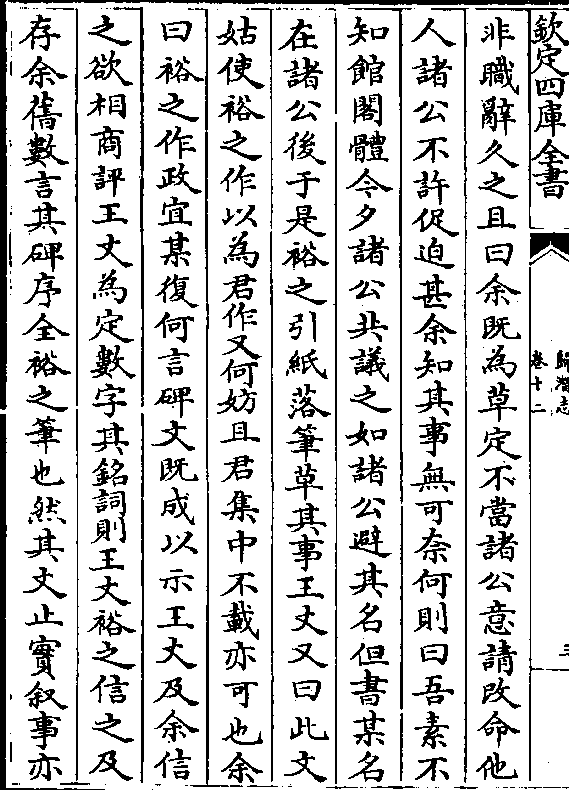 欽定四庫全書
歸潛志
卷十二
三
非職辭久之且曰余既為草定不當諸公意請改命他
人諸公不許促迫甚余知其事無可奈何則曰吾素不
知館閣體今夕諸公共議之如諸公避其名但書某名
在諸公後于是裕之引紙落筆草其事王丈又曰此文
姑使裕之作以為君作又何妨且君集中不載亦可也余
曰裕之作政宜某復何言碑文既成以示王丈及余信
之欲相商評王丈為定數字其銘詞則王丈裕之信之及
存余舊數言其碑序全裕之筆也然其文止實叙事亦